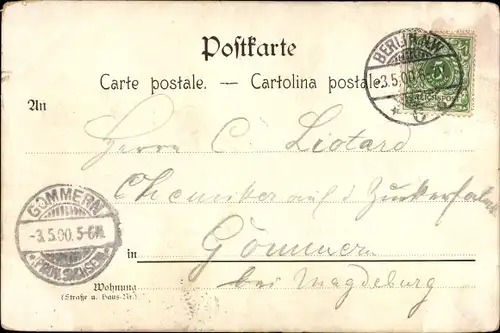 Postkarte
Carte postale. — Cartolina postale
BERLIN N.W.
3.5.00
An
Herrn C. Liotard
Chemiker auf d Zuckerfabrik
GOMMERN
-3.5.00. 5-6N.
in Gömmern
Wohnung
(Straße u. Haus-Nr.)
bei Magdeburg